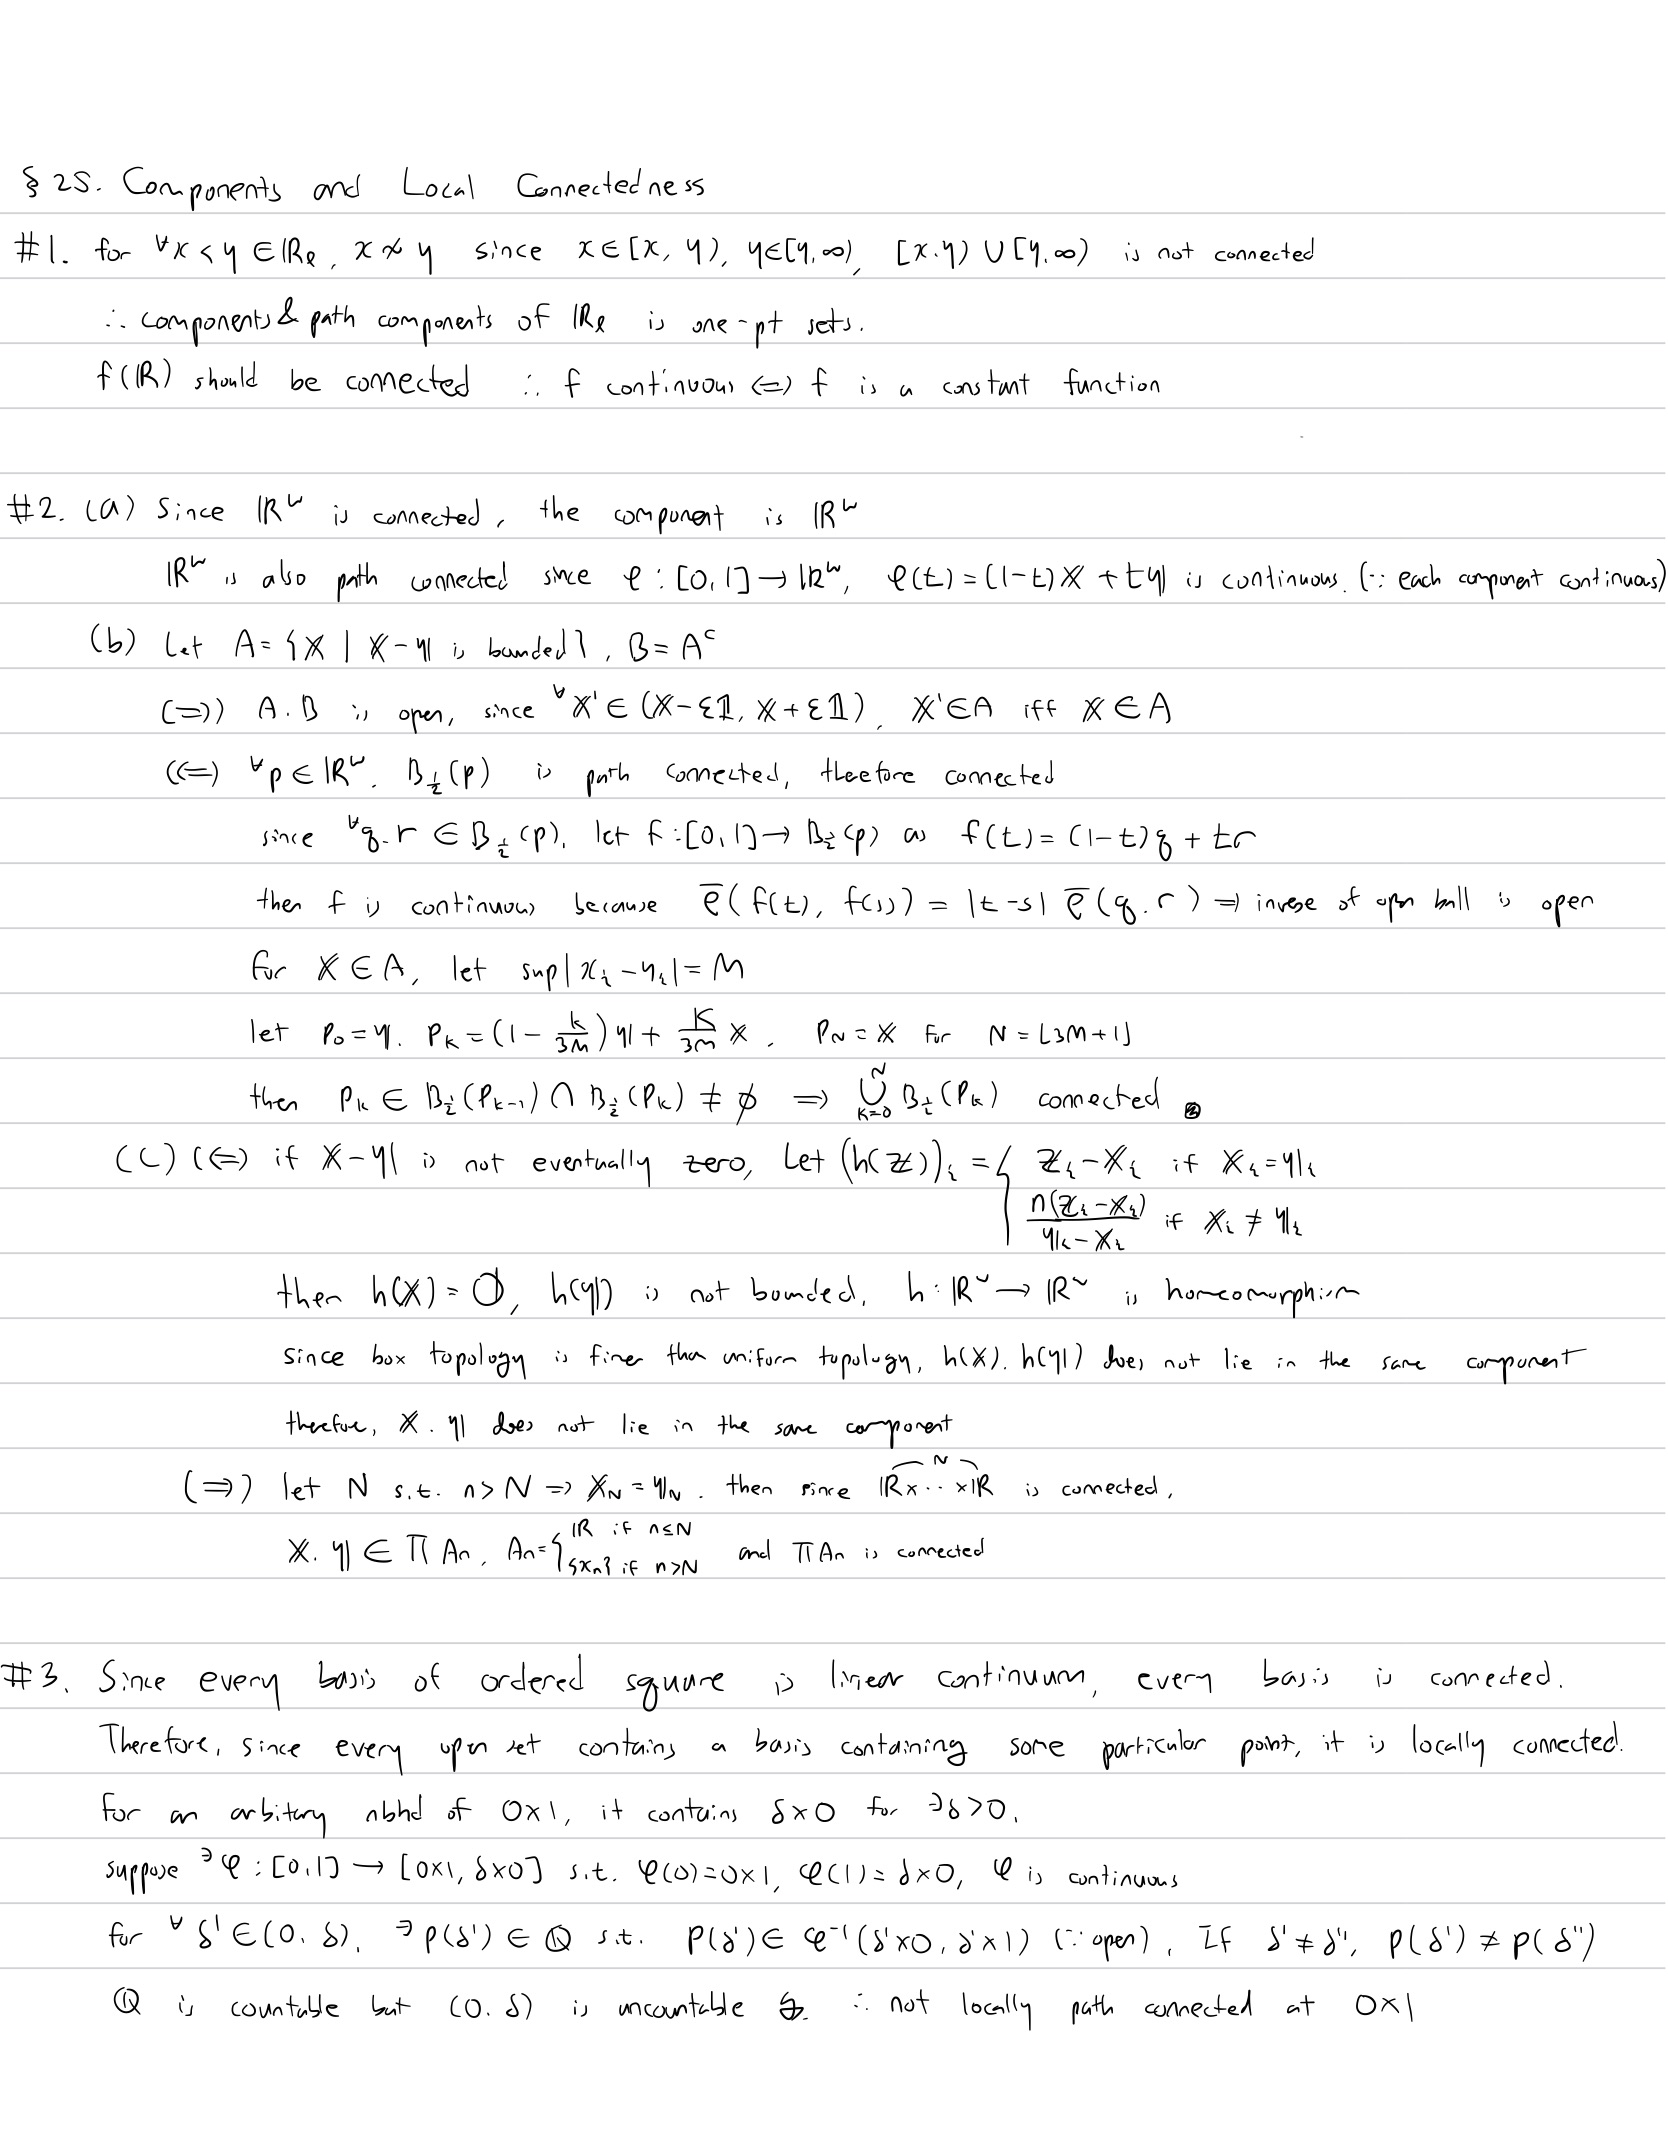 § 25. Components and Local Connectedness
#1. for ∀x < y ∈ ℝℓ, x ≁ y since x∈[x, y), y∈[y,∞), [x.y) ∪ [y,∞) is not connected
∴ components & path components of ℝℓ is one-pt sets.
f(ℝ) should be connected ∴ f continuous ⇔ f is a constant function
#2. (a) Since ℝ^ω is connected, the component is ℝ^ω
ℝ^ω is also path connected since φ : [0,1] → ℝ^ω, φ(t) = (1-t)𝕩 + t𝕪 is continuous. (∵ each component continuous)
(b) Let A = {𝕩 | 𝕩-𝕪 is bounded}, B = A^c
(⇒) A.B is open, since ∀𝕩' ∈ (𝕩-ε𝟙, 𝕩+ε𝟙), 𝕩'∈A iff 𝕩∈A
(⇐) ∀p ∈ ℝ^ω. B_½(p) is path connected, theefore connected
since ∀q.r ∈ B_½(p), let f : [0,1] → B_½(p) as f(t) = (1-t)q + tr
then f is continuous because ρ̄(f(t), f(s)) = |t-s| ρ̄(q.r) ⇒ invese of open ball is open
for 𝕩∈A, let sup|x_i - y_i| = M
let P_0 = 𝕪. P_k = (1 - k/3M)𝕪 + k/3M 𝕩, P_N = 𝕩 for N = ⌊3M+1⌋
then P_k ∈ B_½(P_{k-1}) ∩ B_½(P_k) ≠ ∅ ⇒ ⋃_{k=0}^N B_½(P_k) connected
(c) (⇐) if 𝕩-𝕪 is not eventually zero, Let (h(𝕫))_i = { 𝕫_i - 𝕩_i if 𝕩_i = 𝕪_i
n(𝕫_i - 𝕩_i)/(𝕪_i - 𝕩_i) if 𝕩_i ≠ 𝕪_i
then h(𝕩) = 𝟘, h(𝕪) is not bounded, h : ℝ^ω → ℝ^ω is homeomorphism
since box topology is finer than uniform topology, h(𝕩). h(𝕪) does not lie in the same component
therefore, 𝕩. 𝕪 does not lie in the same component
(⇒) let N s.t. n > N ⇒ 𝕩_N = 𝕪_N. then since ℝ×··×ℝ (N) is connected,
𝕩. 𝕪 ∈ ΠA_n, A_n = { ℝ if n≤N, {x_n} if n>N and ΠA_n is connected
#3. Since every basis of ordered square is linear continuum, every basis is connected.
Therefore, since every open set contains a basis containing some particular point, it is locally connected.
For an arbitary nbhd of 0×1, it contains δ×0 for ∃δ>0.
suppose ∃φ : [0,1] → [0×1, δ×0] s.t. φ(0)=0×1, φ(1)=δ×0, φ is continuous
for ∀δ'∈(0.δ), ∃p(δ')∈ℚ s.t. p(δ')∈φ⁻¹(δ'×0, δ'×1) (∵ open), If δ'≠δ'', p(δ')≠p(δ'')
ℚ is countable but (0.δ) is uncountable ∴ not locally path connected at 0×1